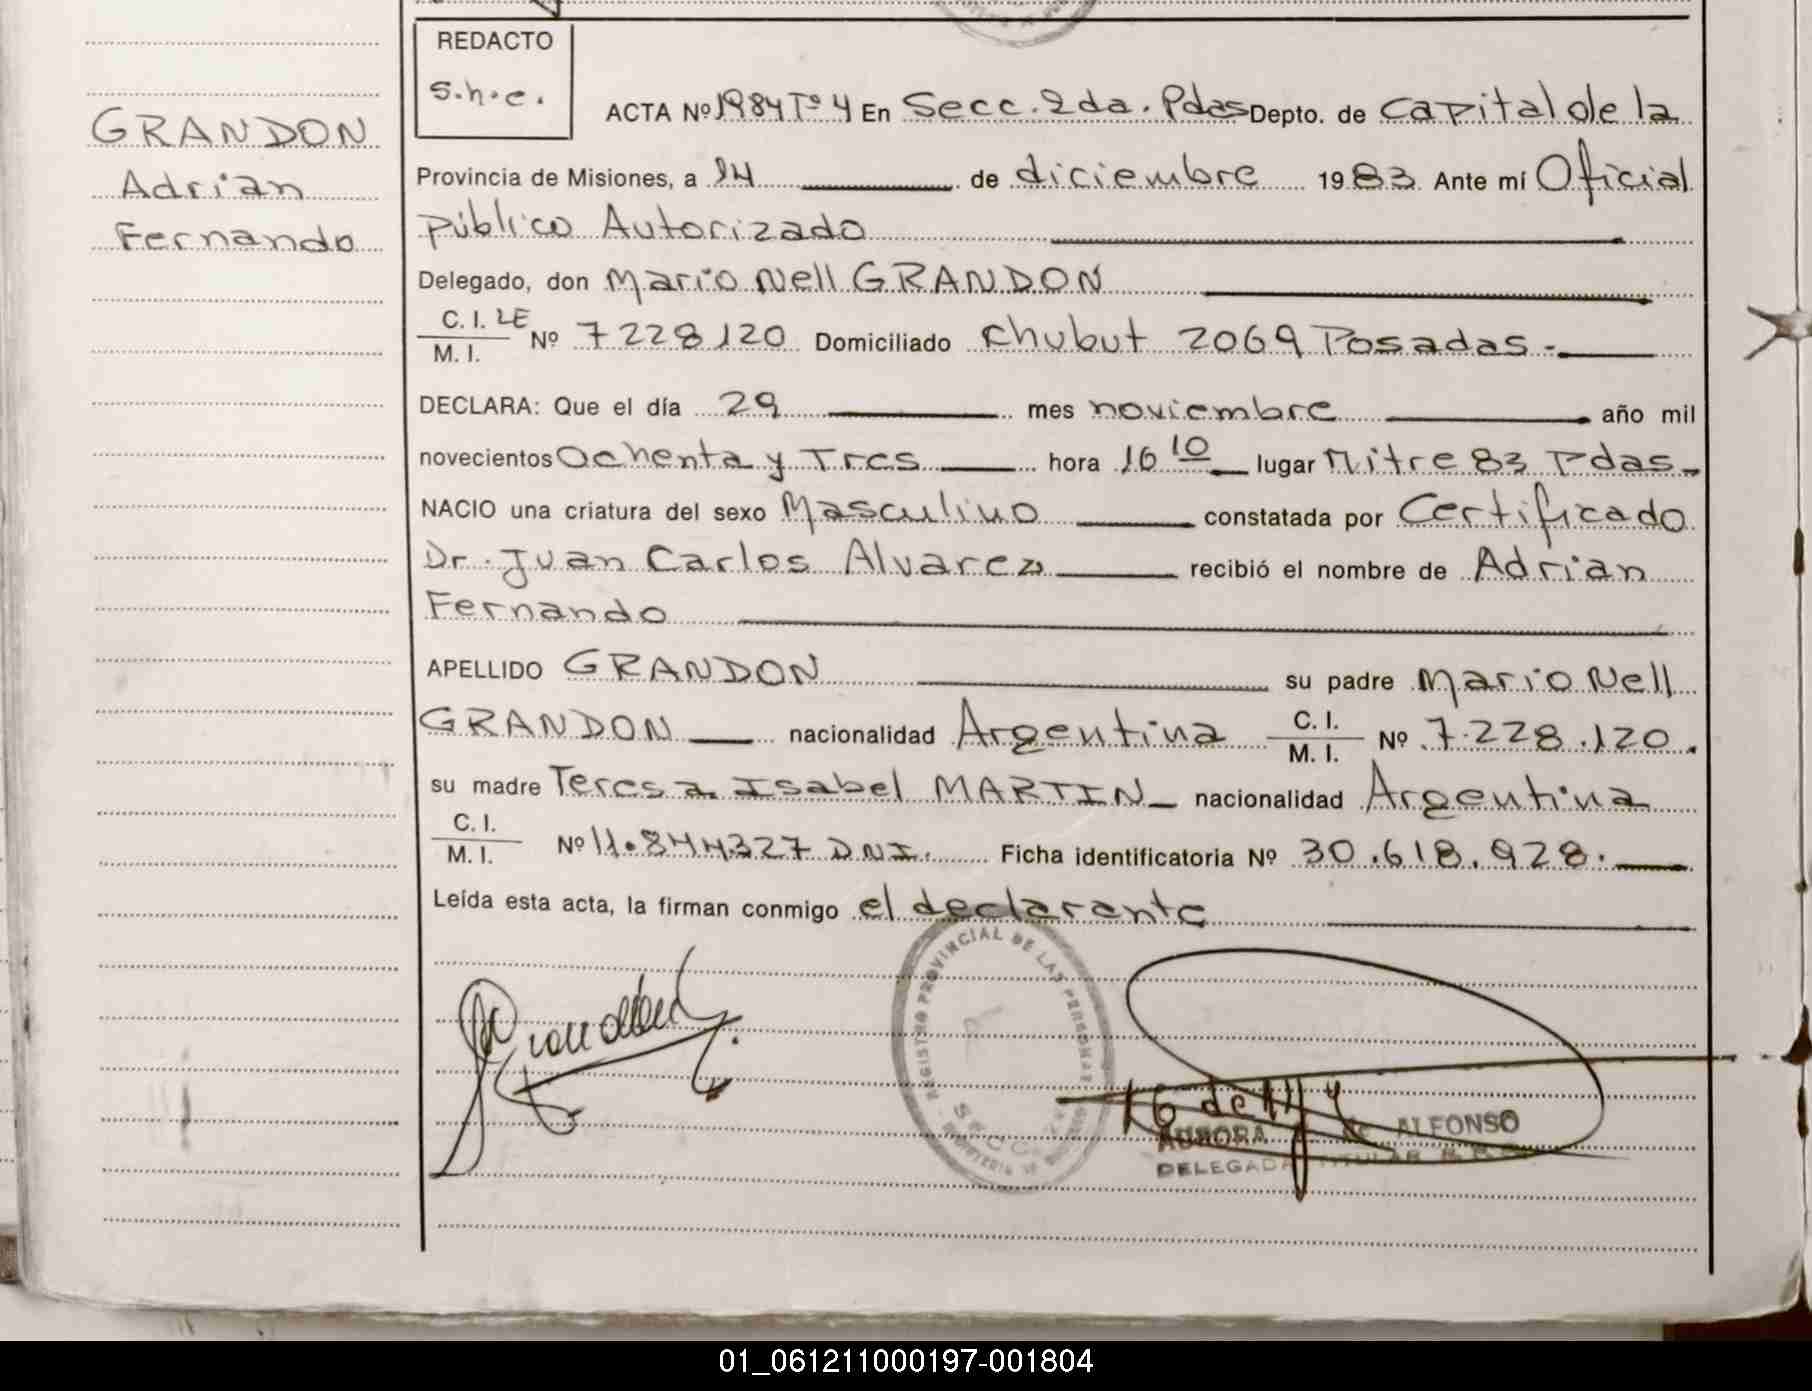 REDACTO
s.h.e.
GRANDON
Adrian
Fernando
ACTA Nº 1984 Tº 4 En Secc. 2da. Pdas Depto. de Capital de la
Provincia de Misiones, a 14 de diciembre 1983 Ante mí Oficial
Público Autorizado
Delegado, don Mario Nell GRANDON
C. I. LE
M. I. Nº 7228120 Domiciliado Chubut 2069 Posadas.-
DECLARA: Que el día 29 mes noviembre año mil
novecientos Ochenta y Tres hora 16 10 lugar Mitre 83 Pdas.
NACIO una criatura del sexo Masculino constatada por Certificado
Dr. Juan Carlos Alvarez recibió el nombre de Adrian
Fernando
APELLIDO GRANDON su padre Mario Nell
GRANDON nacionalidad Argentina C. I. M. I. Nº 7.228.120.
su madre Teresa Isabel MARTIN nacionalidad Argentina
C. I. M. I. Nº 11.844327 DNI. Ficha identificatoria Nº 30.618.928.
Leída esta acta, la firman conmigo el declarante
REGISTRO PROVINCIAL DE LAS PERSONAS
SECC.
AURORA de ALFONSO
DELEGADA TITULAR
01_061211000197-001804